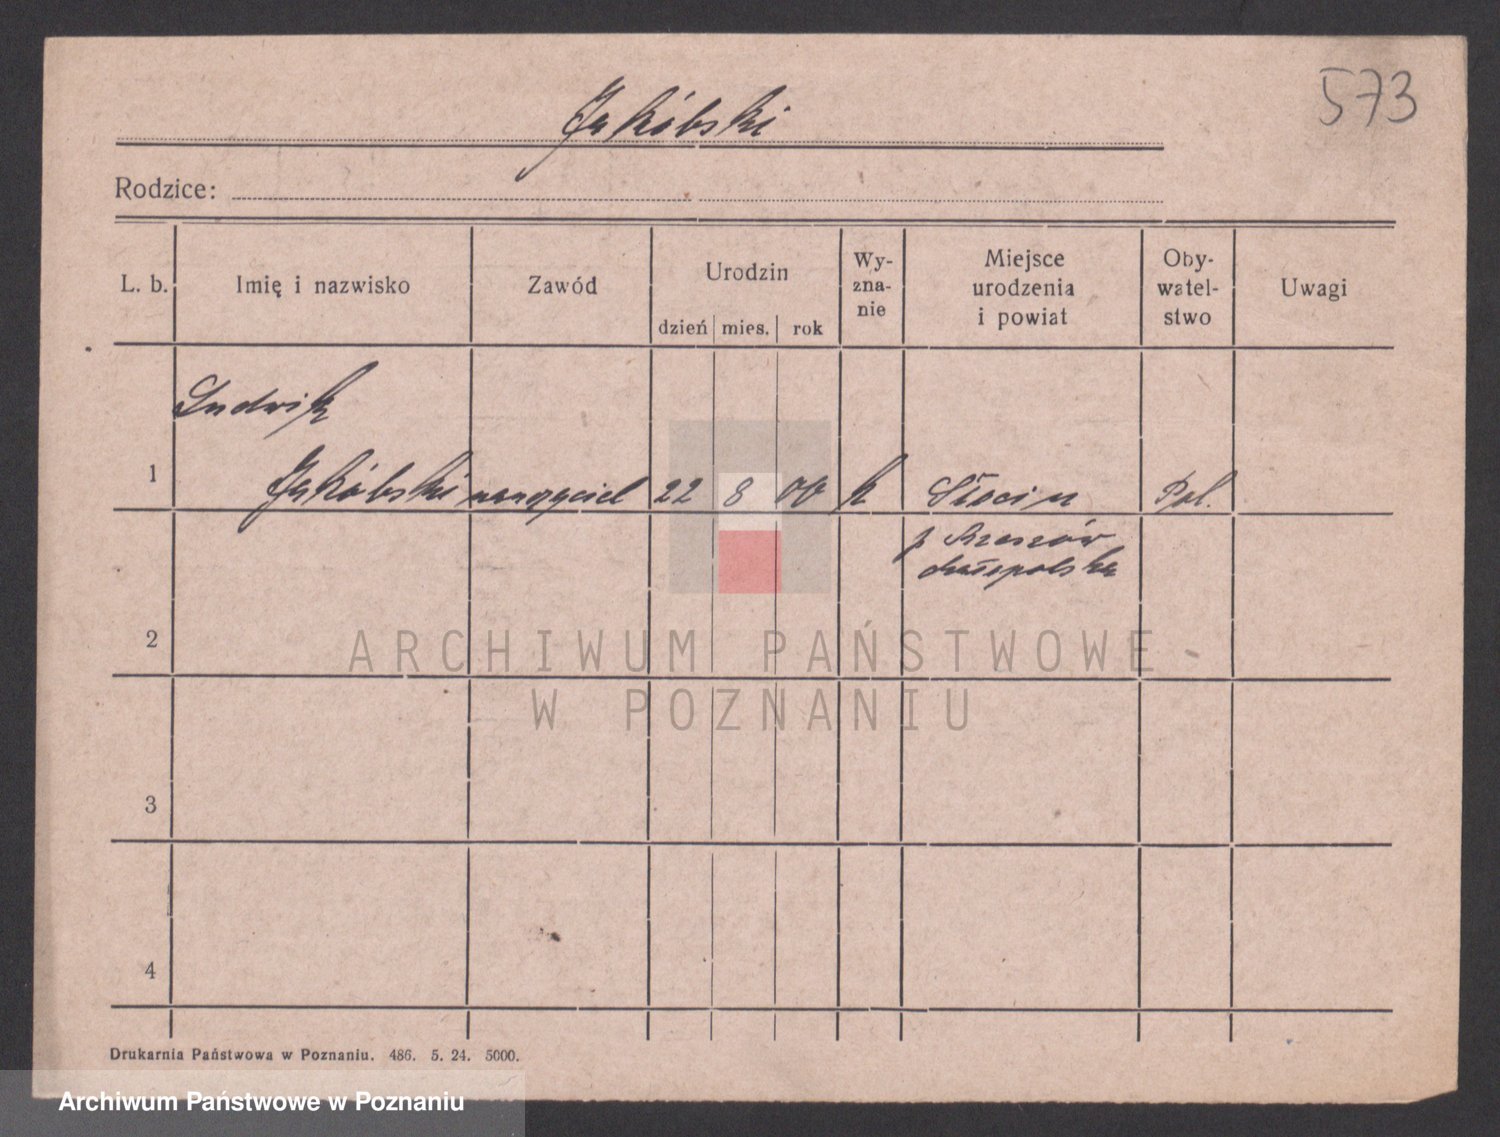 573
Jakóbski
Rodzice:
L. b.
Imię i nazwisko
Zawód
Urodzin
dzień
mies.
rok
Wy-
zna-
nie
Miejsce
urodzenia
i powiat
Oby-
watel-
stwo
Uwagi
Ludwik
1
Jakóbski
nauczyciel
22
8
00
k
Słocin
Pol.
p Rzeszów
Małopolska
2
3
4
ARCHIWUM PAŃSTWOWE
W POZNANIU
Drukarnia Państwowa w Poznaniu. 486. 5. 24. 5000.
Archiwum Państwowe w Poznaniu